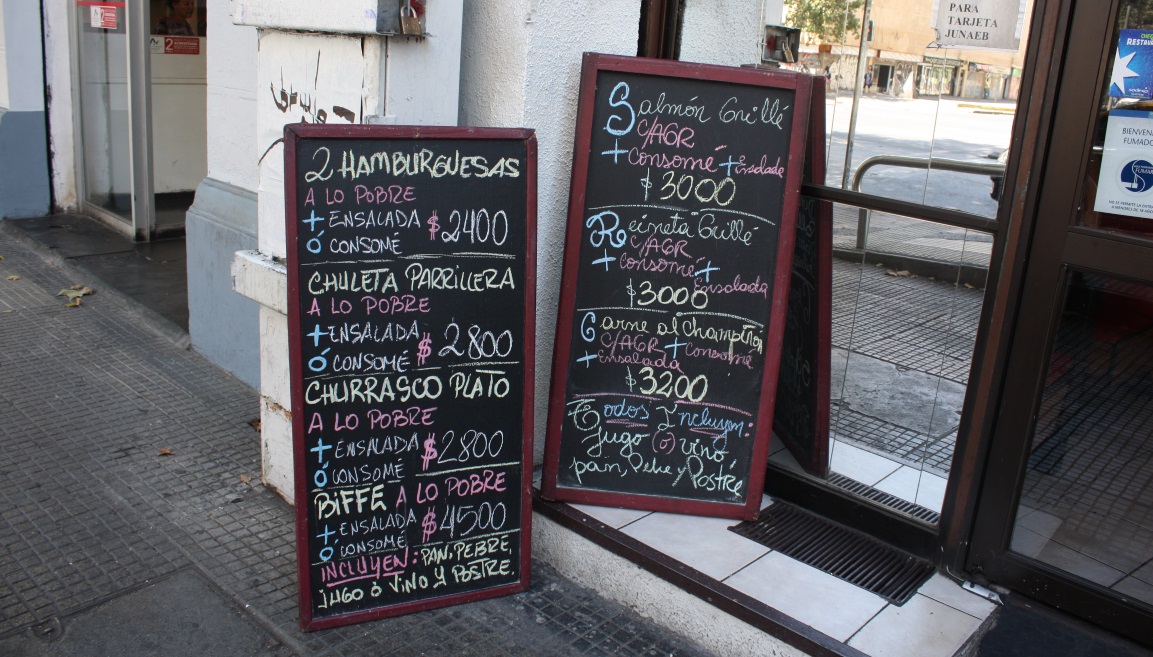 2 HAMBURGUESAS
A LO POBRE
+ ENSALADA $2400
Ó CONSOMÉ
CHULETA PARRILLERA
A LO POBRE
+ ENSALADA
Ó CONSOMÉ $2800
CHURRASCO PLATO
A LO POBRE
+ ENSALADA $2800
Ó CONSOMÉ
BIFFE A LO POBRE
+ ENSALADA $4500
Ó CONSOMÉ
INCLUYEN: PAN, PEBRE,
JUGO ó VINO Y POSTRE.
Salmón Grillé
C/AGR
+ Consomé + Ensalada
$ 3000
Reineta Grillé
C/AGR
+ consomé +
Ensalada
$3000
Carne al Champiñón
C/AGR + Consomé
+ Ensalada
$3200
Todos Incluyen:
Jugo (o) vino,
pan, Pebre y Postre
PARA
TARJETA
JUNAEB
2